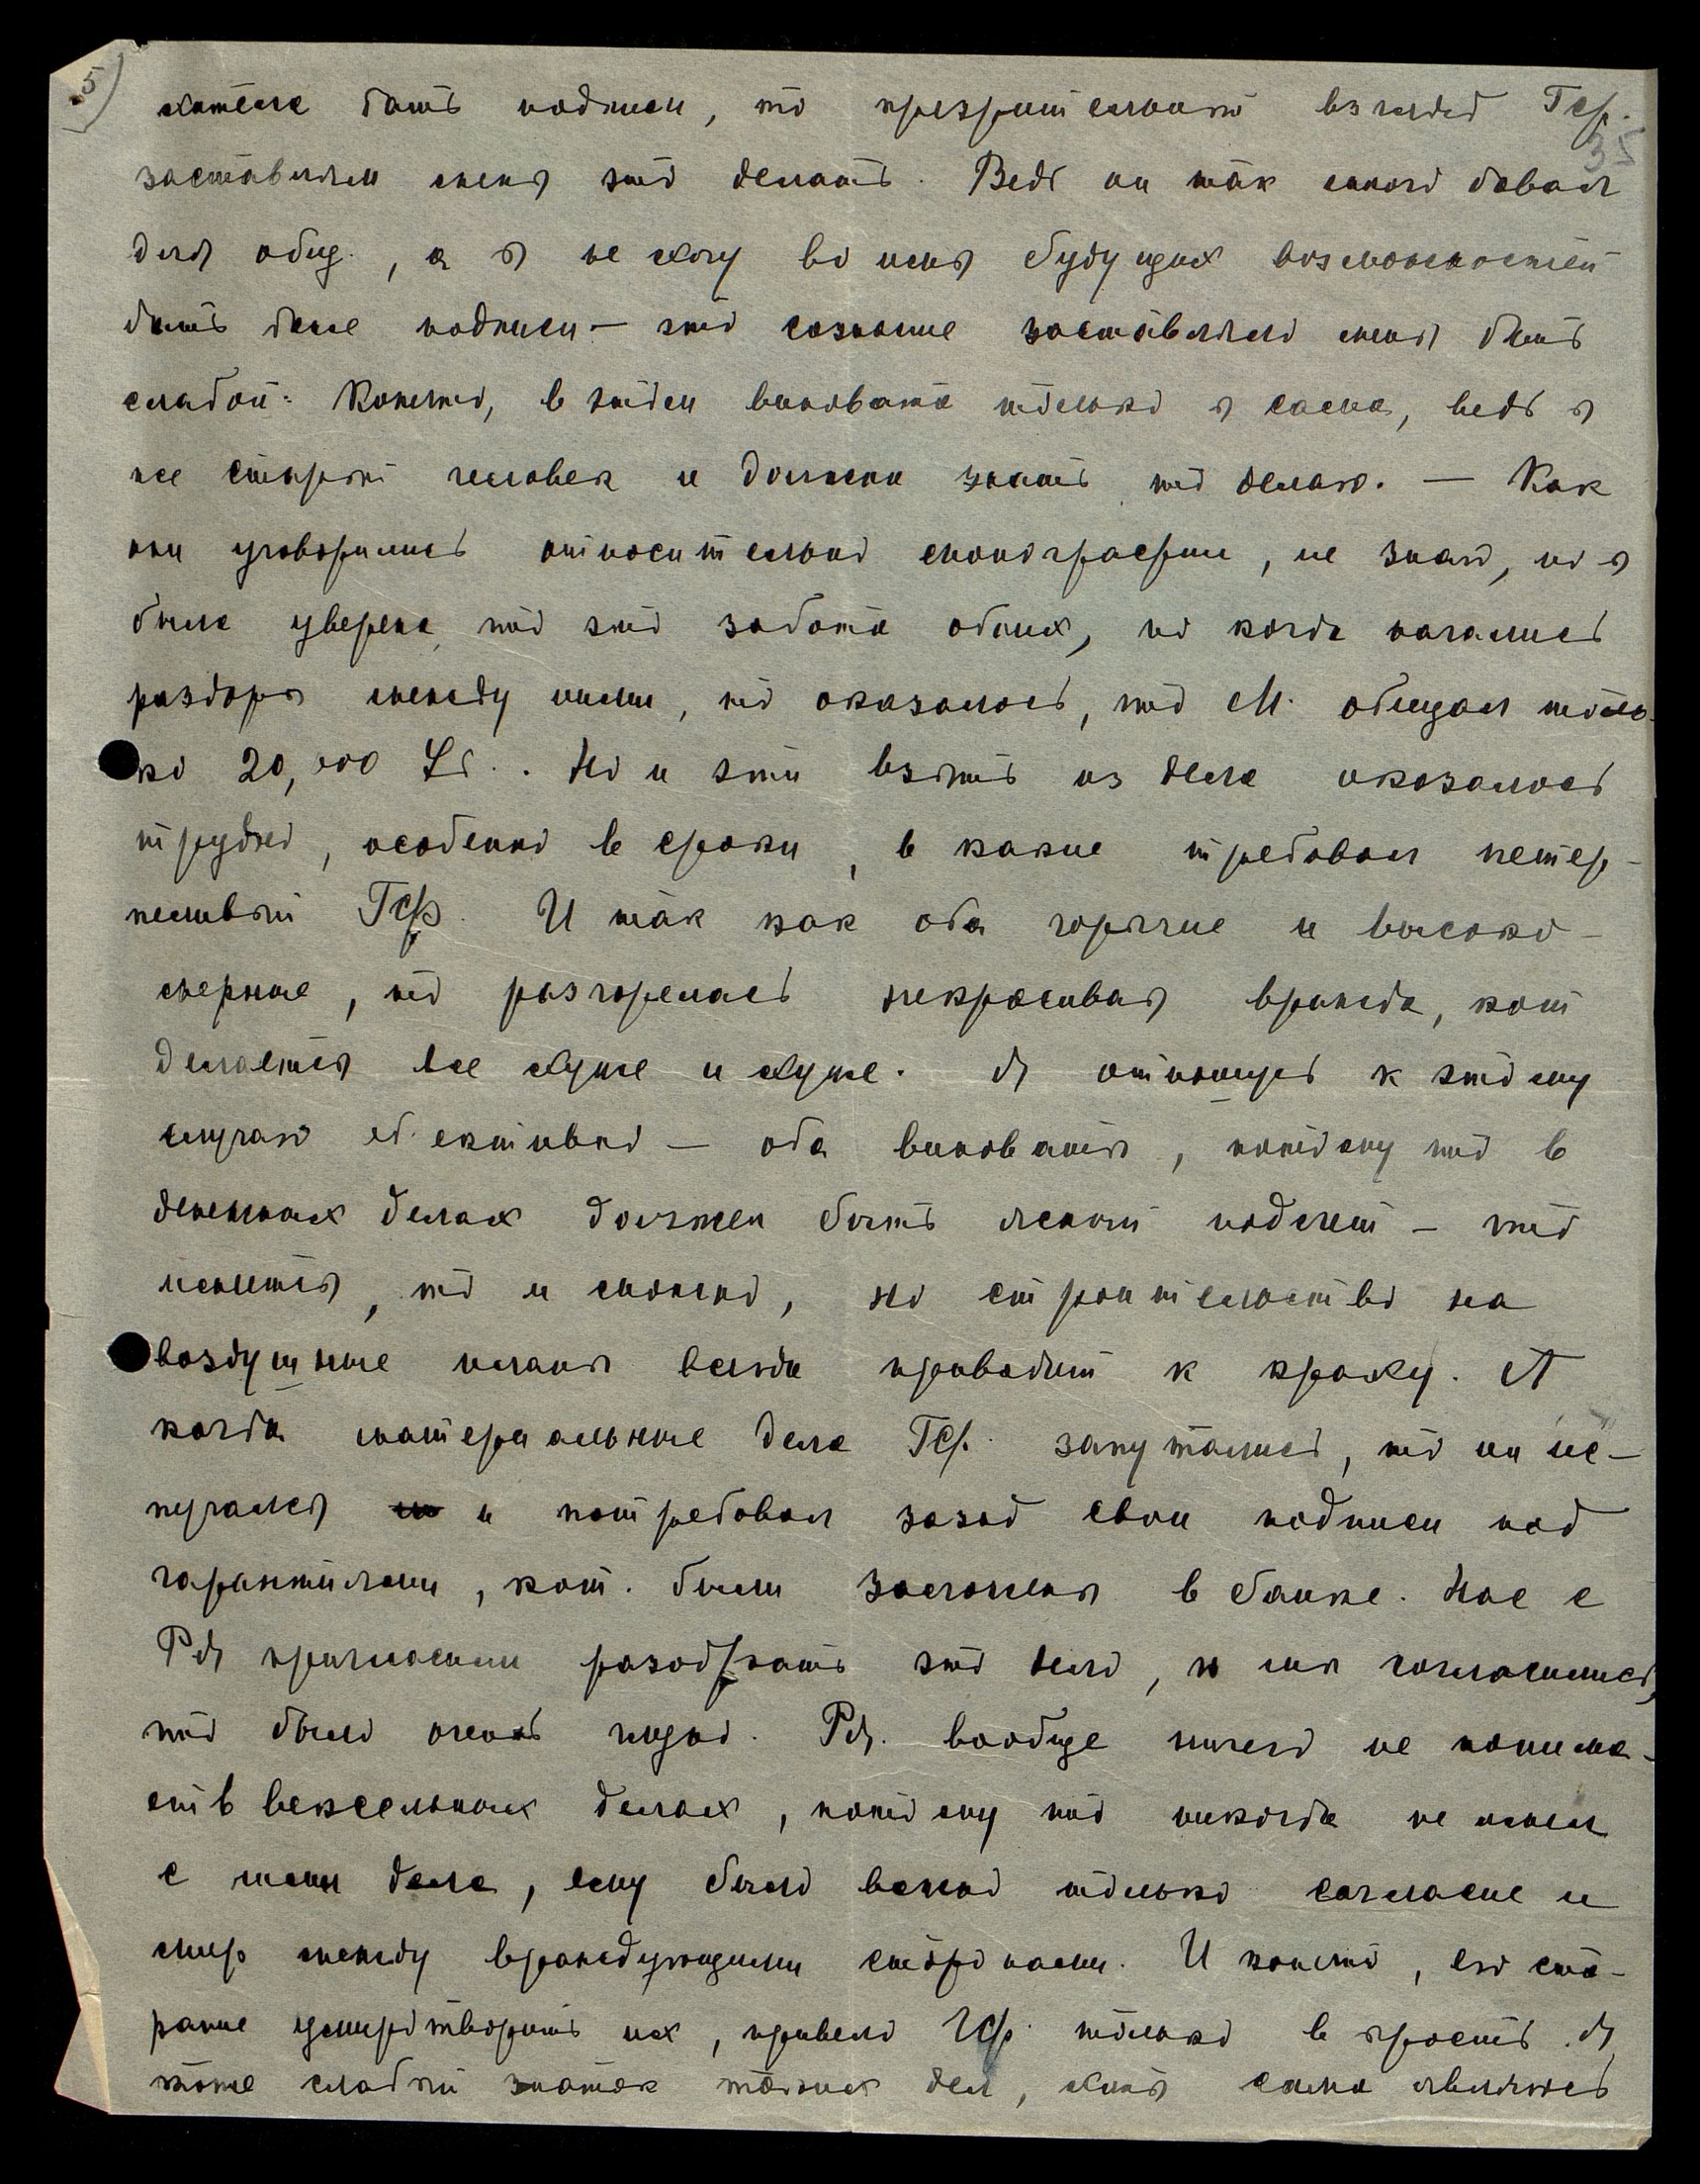 5)
хотела дать подписи, то презрительный взгляд Геф.
35
заставлял меня это делать. Ведь он так много давал
для общ., а я не хочу во имя будущих возможностей
дать даже подписи — это сознание заставляло меня быть
слабой. Конечно, в этом виновата только я сама, ведь я
же старый человек и должна знать что делаю. — Как
они уговорились относительно монографии, не знаю, но я
была уверена, что это забота обоих, но когда начались
раздоры между ними, то оказалось, что М. обещал толь-
ко 20,000 Ls.. Но и эти взять из дела оказалось
трудно, особенно в сроки, в какие требовал нетер-
пеливый Геф. И так как оба горячие и высоко-
мерные, то разгорелась некрасивая вражда, кот
делается все хуже и хуже. Я отношусь к этому
случаю об'ективно — оба виноваты, потому что в
денежных делах должен быть ясный подсчет — что
имеется, то и можно, но строительство на
воздушные планы всегда приводит к краху. А
когда материальные дела Геф. запутались, то он ис-
пугался и потребовал назад свои подписи под
гарантиями, кот. были заложены в банке. Нас с
РЯ пригласили разобрать это дело, и мы согласились,
что было очень глупо. РЯ. вообще ничего не понима-
ет в вексельных делах, потому что никогда не имел
с ними дела, ему было важно только согласие и
мир между враждующими сторонами. И конечно, его ста-
рание умиротворить их, привело Геф. только в ярость. Я
тоже слабый знаток таких дел, хотя сама являюсь